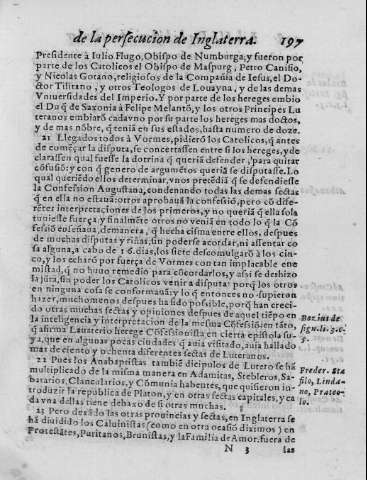 de la persecucion de Inglaterra. 197
Presidente à Iulio Flugo, Obispo de Numburga, y fueron por
parte de los Catolicos el Obispo de Maspurg, Petro Canisio,
y Nicolas Gotano, religiosos de la Compañia de Iesus, el Do-
ctor Tilitano, y otros Teologos de Louayna, y de las demas
Vniuersidades del Imperio. Y por parte de los hereges embio
el Duq̃ de Saxonia à Felipe Melantõ, y los otros Principes Lu
teranos embiarõ cada vno por su parte los hereges mas doctos,
y de mas nõbre, q̃ teniã en sus estados, hasta numero de doze.
21 Llegados todos à Vormes, pidierõ los Catolicos, q̃ antes
de começar la disputa, se concertassen entre si los hereges, y de
clarassen qual fuesse la dotrina q̃ queriã defender, para quitar
cõfusiõ: y con q̃ genero de argumẽtos queriã se disputasse. Lo
qual queriẽdo ellos determinar, vnos precediã q̃ se defendiesse
la Confession Augustana, condenando todas las demas sectas
q̃ en ella no estauã: otros aprobauã la confessiõ, pero cõ dife-
rẽtes interpretaciones de los primeros, y no queriã q̃ ella sola
tuuiesse fuerça, y finalmẽte otros no veniã en todo lo q̃ la Cõ
fessiõ enseñaua, de manera, q̃ hecha cisma entre ellos, despues
de muchas disputas y riñas, sin poderse acordar, ni assentar co
sa alguna, à cabo de 16. dias, los siete descomulgarõ à los cin-
co, y los echarõ por fuerça de Vormes con tan implacable ene
mistad, q̃ no huuo remedio para cõcordarlos, y assi se deshizo
la jũta, sin poder los Catolicos venir à disputar porq̃ los otros
en ninguna cosa se conformassẽ: y lo q̃ entonces no supieron
hazer, mucho menos despues ha sido possible, porq̃ han creci-
do otras muchas sectas y opiniones despues de aquel tiẽpo en
la inteligencia y interpretacion de la mesma Cõfessiõ: en tãto,
q̃ afirma Lauterio herege Cõfessionista en cierta epistola su-
ya, que en algunas pocas ciudades q̃ auia visitado, auia hallado
mas de ciento y ochenta diferentes sectas de Luteranos.
22 Pues los Anabapistas tambiẽ dicipulos de Lutero se hã
multiplicado de la misma manera en Adamitas, Stebleros, Sa-
batarios, Clancolarios, y Cõmunia habentes, que quisieron in-
troduzir la republica de Platon, y en otras sectas capitales, y ca
da vna dellas tiene debaxo de si otras muchas.
23 Pero dexãdo las otras prouincias y sectas, en Inglaterra se
hã diuidido los Caluinistas (como en otra ocasiõ diximos) en
Protestãtes, Puritanos, Brunistas, y la Familia de Amor. fuera de
N 3 las
de
sign. li. 3. c.
5
Freder. Sta
filo, Linda-
no, Prateo-
lo.